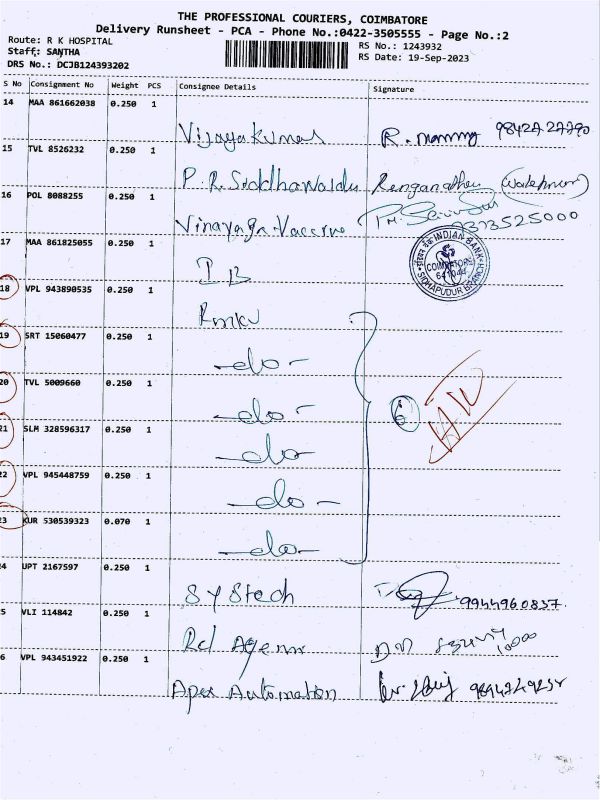 THE PROFESSIONAL COURIERS, COIMBATORE
Delivery Runsheet - PCA - Phone No.:0422-3505555 - Page No.:2
Route: R K HOSPITAL
RS No.: 1243932
Staff: SANTHA
RS Date: 19-Sep-2023
DRS No.: DCJB124393202
S No Consignment No Weight PCS Consignee Details Signature
14 MAA 861662038 0.250 1
Vijayakumar R.
15 TVL 8526232 0.250 1
P.R. Siddhanaidu
16 POL 8088255 0.250 1
Vinayaga Vaccine
17 MAA 861825055 0.250 1
I B
INDIAN BANK
COIMBATORE
SIDHAPUDUR BRANCH
18 VPL 943890535 0.250 1
19 SRT 15060477 0.250 1
-do-
20 TVL 5009660 0.250 1
-do- 6
21 SLM 328596317 0.250 1
-do-
22 VPL 945448759 0.250 1
-do-
23 KUR 530539323 0.070 1
-do-
4 UPT 2167597 0.250 1
Systech 9944960837
5 VLI 114842 0.250 1
6 VPL 943451922 0.250 1
Apex Automation